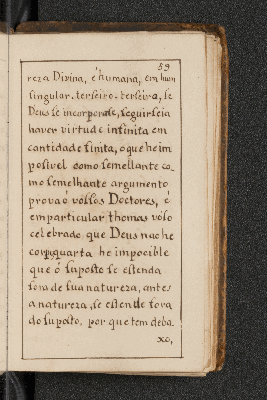 59
reza Divina, é humana, em hum
singular. terseiro. terseira, se
Deus se incorporase, seguirseia
haver virtude infinita em
cantidade finita, o que he im
posivel como semellante co-
mo semelhante argumento
provaõ vossos Doctores, é
em particular thomas voso
celebrado que Deus naõ he
corp. quarta he impocible
que ò suposto se estenda
fora de sua natureza, antes
a natureza, se estende fora
do suposto, por que tem deba
xo,